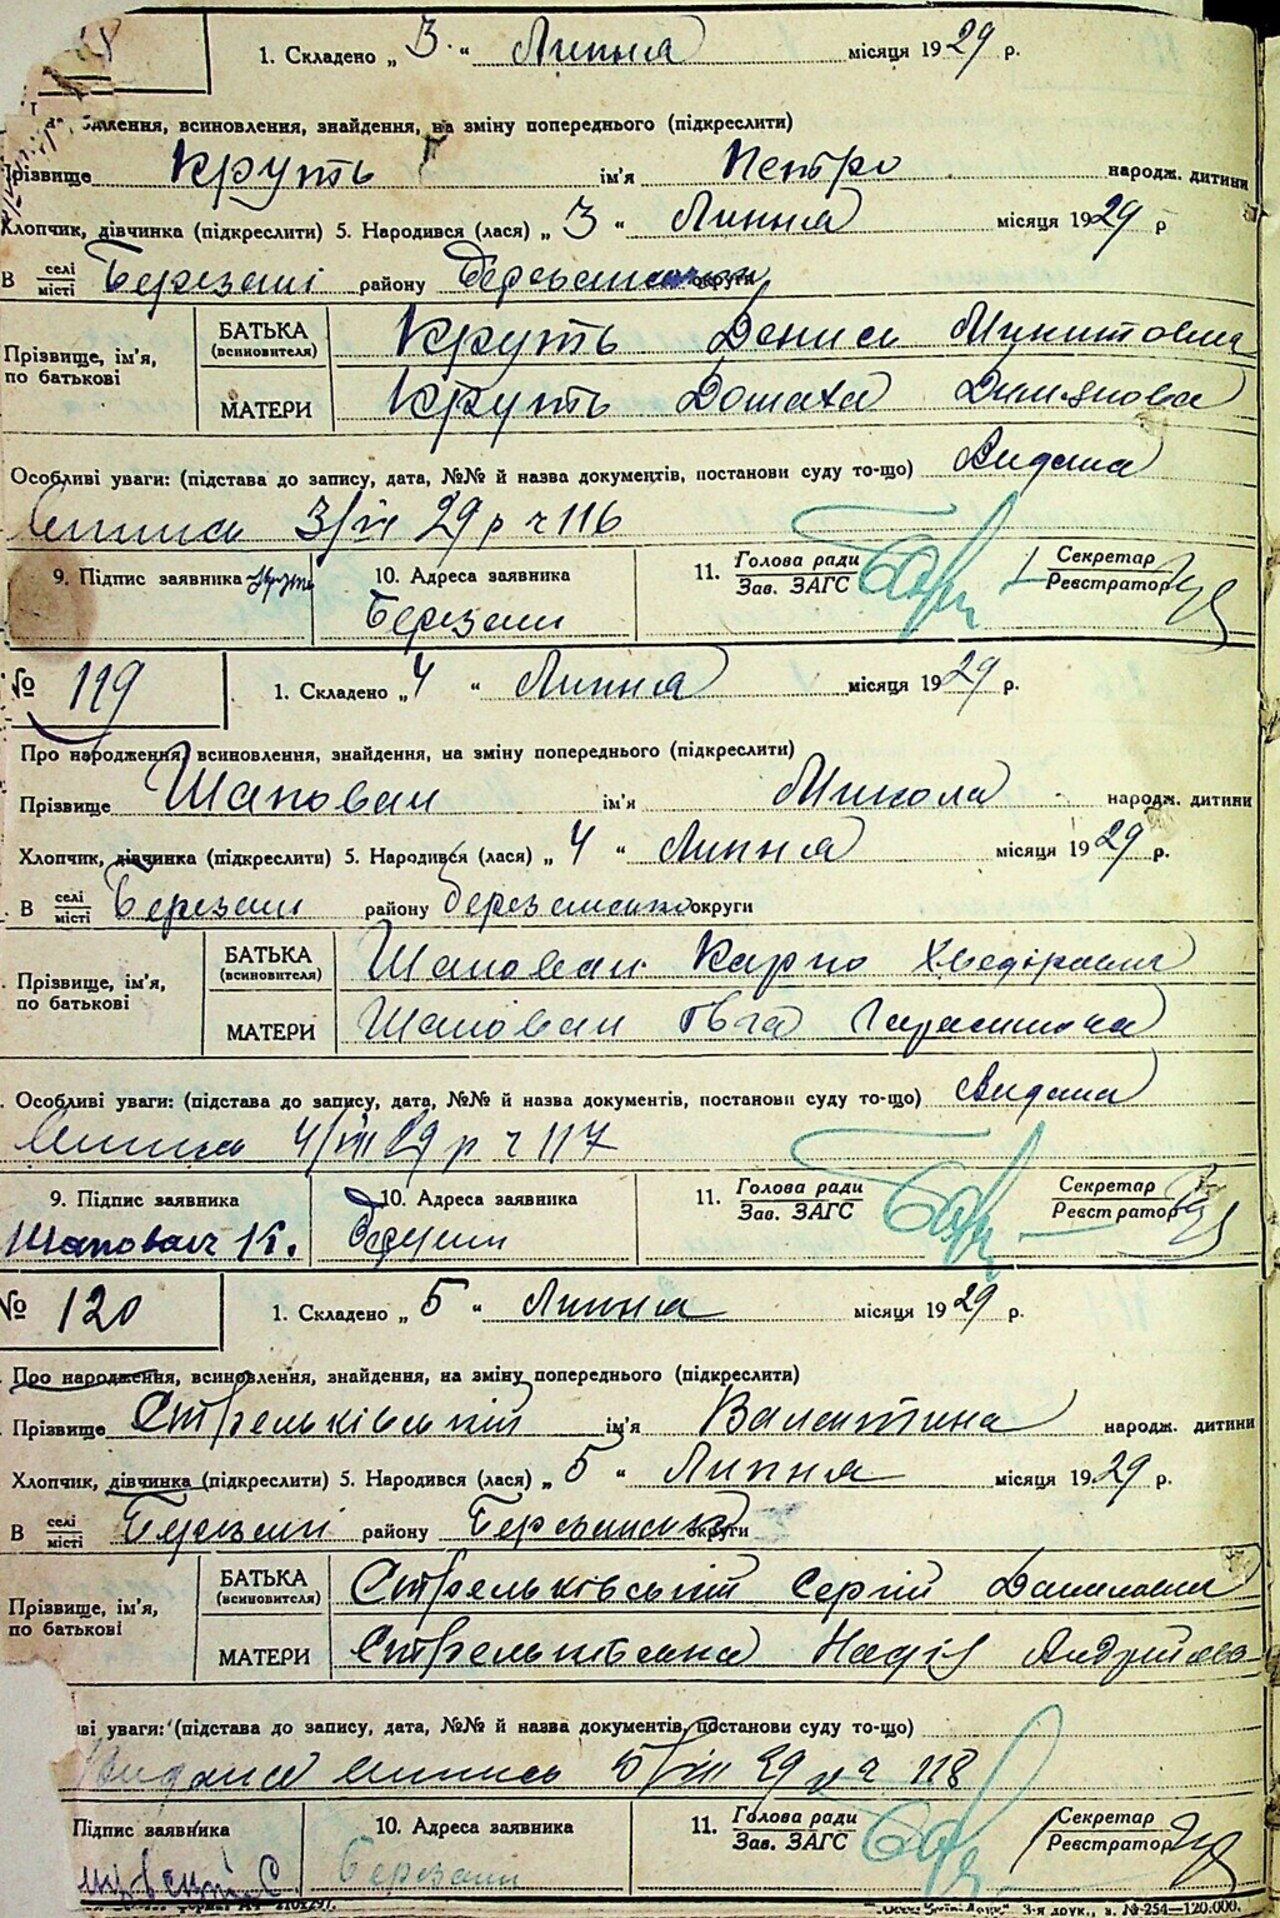 1. Складено „ 3 “ Липня місяця 1929 р.
всиновлення, знайдення, на зміну попереднього (підкреслити)
Прізвище Круть ім'я Петро народж. дитини
Хлопчик, дівчинка (підкреслити) 5. Народився (лася) „ 3 “ Липня місяця 1929 р
В селі місті Березані району округи
Прізвище, ім'я, по батькові
БАТЬКА (всиновителя) Круть Денис Микитович
МАТЕРИ Круть Домаха Димянова
Особливі уваги: (підстава до запису, дата, №№ й назва документів, постанови суду то-що) Видана
3/VII 29 р ч 116
9. Підпис заявника Круть 10. Адреса заявника 11. Голова ради Зав. ЗАГС Секретар Реєстратор
Березань
№ 119 1. Складено „ 4 “ Липня місяця 1929 р.
Про народження, всиновлення, знайдення, на зміну попереднього (підкреслити)
Прізвище Шаповал ім'я Микола народж. дитини
Хлопчик, дівчинка (підкреслити) 5. Народився (лася) „ 4 “ Липня місяця 1929 р.
В селі місті Березані району округи
Прізвище, ім'я, по батькові
БАТЬКА (всиновителя) Шаповал Карпо Хведірович
МАТЕРИ Шаповал Гарасимова
Особливі уваги: (підстава до запису, дата, №№ й назва документів, постанови суду то-що) Видана
29 р ч 117
9. Підпис заявника 10. Адреса заявника 11. Голова ради Зав. ЗАГС Секретар Реєстратор
Шаповал К.
№ 120 1. Складено „ 5 “ Липня місяця 1929 р.
Про народження, всиновлення, знайдення, на зміну попереднього (підкреслити)
Прізвище Стрельківський ім'я Валентина народж. дитини
Хлопчик, дівчинка (підкреслити) 5. Народився (лася) „ 5 “ Липня місяця 1929 р.
В селі місті Березані району округи
Прізвище, ім'я, по батькові
БАТЬКА (всиновителя) Стрельківський Сергій Данилович
МАТЕРИ Стрельківська Надія Андрійова
уваги: (підстава до запису, дата, №№ й назва документів, постанови суду то-що)
Видана 29 р ч 118
Підпис заявника 10. Адреса заявника 11. Голова ради Зав. ЗАГС Секретар Реєстратор
Березань
3-я друк., з. № 254—120.000.